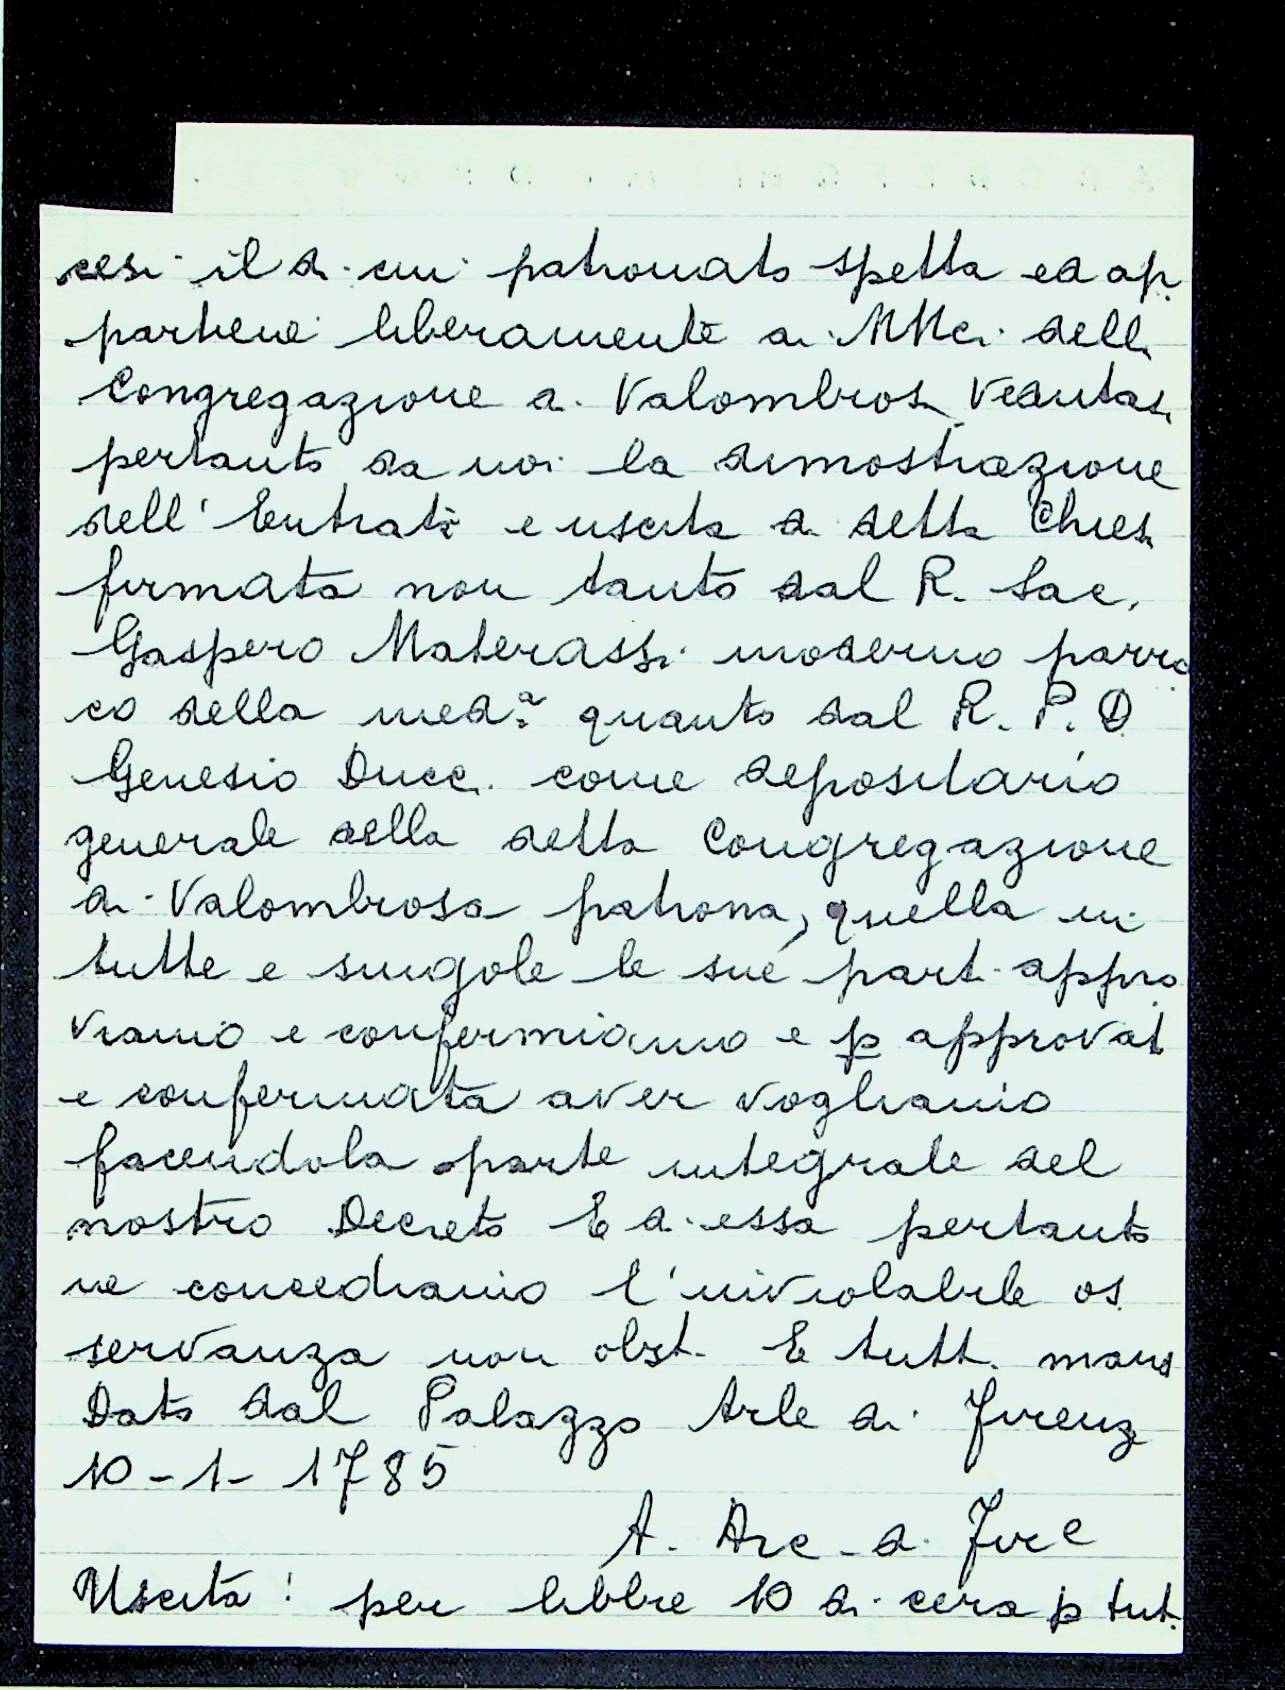 cesi il di cui patronato spetta ed ap
partiene liberamente ai MMci. della
Congregazione di Valombrosa Vedutasi
pertanto da noi la dimostrazione
dell'Entrata e uscita di detta Chiesa
firmata non tanto dal R. Sac.
Gaspero Materassi moderno parro
co della med.ª quanto dal R. P. D
Genesio Ducci come depositario
generale della detta Congregazione
di Valombrosa patrona, quella in
tutte e singole le sue parti appro
viamo e confermiamo e p approvat
e confermata aver vogliamo
facendola parte integrale del
nostro Decreto E di essa pertanto
ne concediamo l'inviolabile os
servanza non obst. E tutt. mand
Dato dal Palazzo Arle di Firenz
10-1-1785
A. Arc. di Fire
Uscita: per libbre 10 di cera p tut.